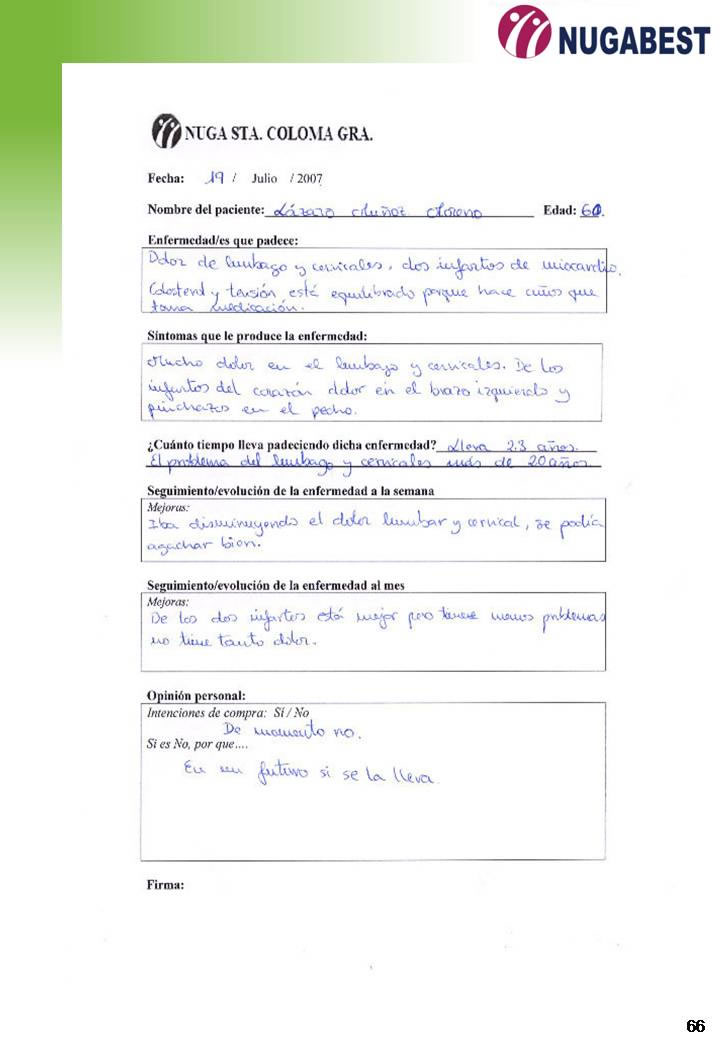 NUGABEST
NUGA STA. COLOMA GRA.
Fecha: 19 / Julio / 2007
Nombre del paciente: Lázaro Muñoz Moreno Edad: 60.
Enfermedad/es que padece:
Dolor de lumbago y cervicales, dos infartos de miocardio.
Colosterol y tensión está equilibrado porque hace años que
toma medicación.
Síntomas que le produce la enfermedad:
Mucho dolor en el lumbago y cervicales. De los
infartos del corazón dolor en el brazo izquierdo y
pinchazos en el pecho.
¿Cuánto tiempo lleva padeciendo dicha enfermedad? Lleva 2.3 años.
El problema del lumbago y cervicales más de 20 años
Seguimiento/evolución de la enfermedad a la semana
Mejoras:
Iba disminuyendo el dolor lumbar y cervical, se podía
agachar bien.
Seguimiento/evolución de la enfermedad al mes
Mejoras:
De los dos infartos está mejor pero tiene menos problemas
no tiene tanto dolor.
Opinión personal:
Intenciones de compra: Sí / No
De momento no.
Si es No, por que....
En un futuro si se la lleva
Firma:
66